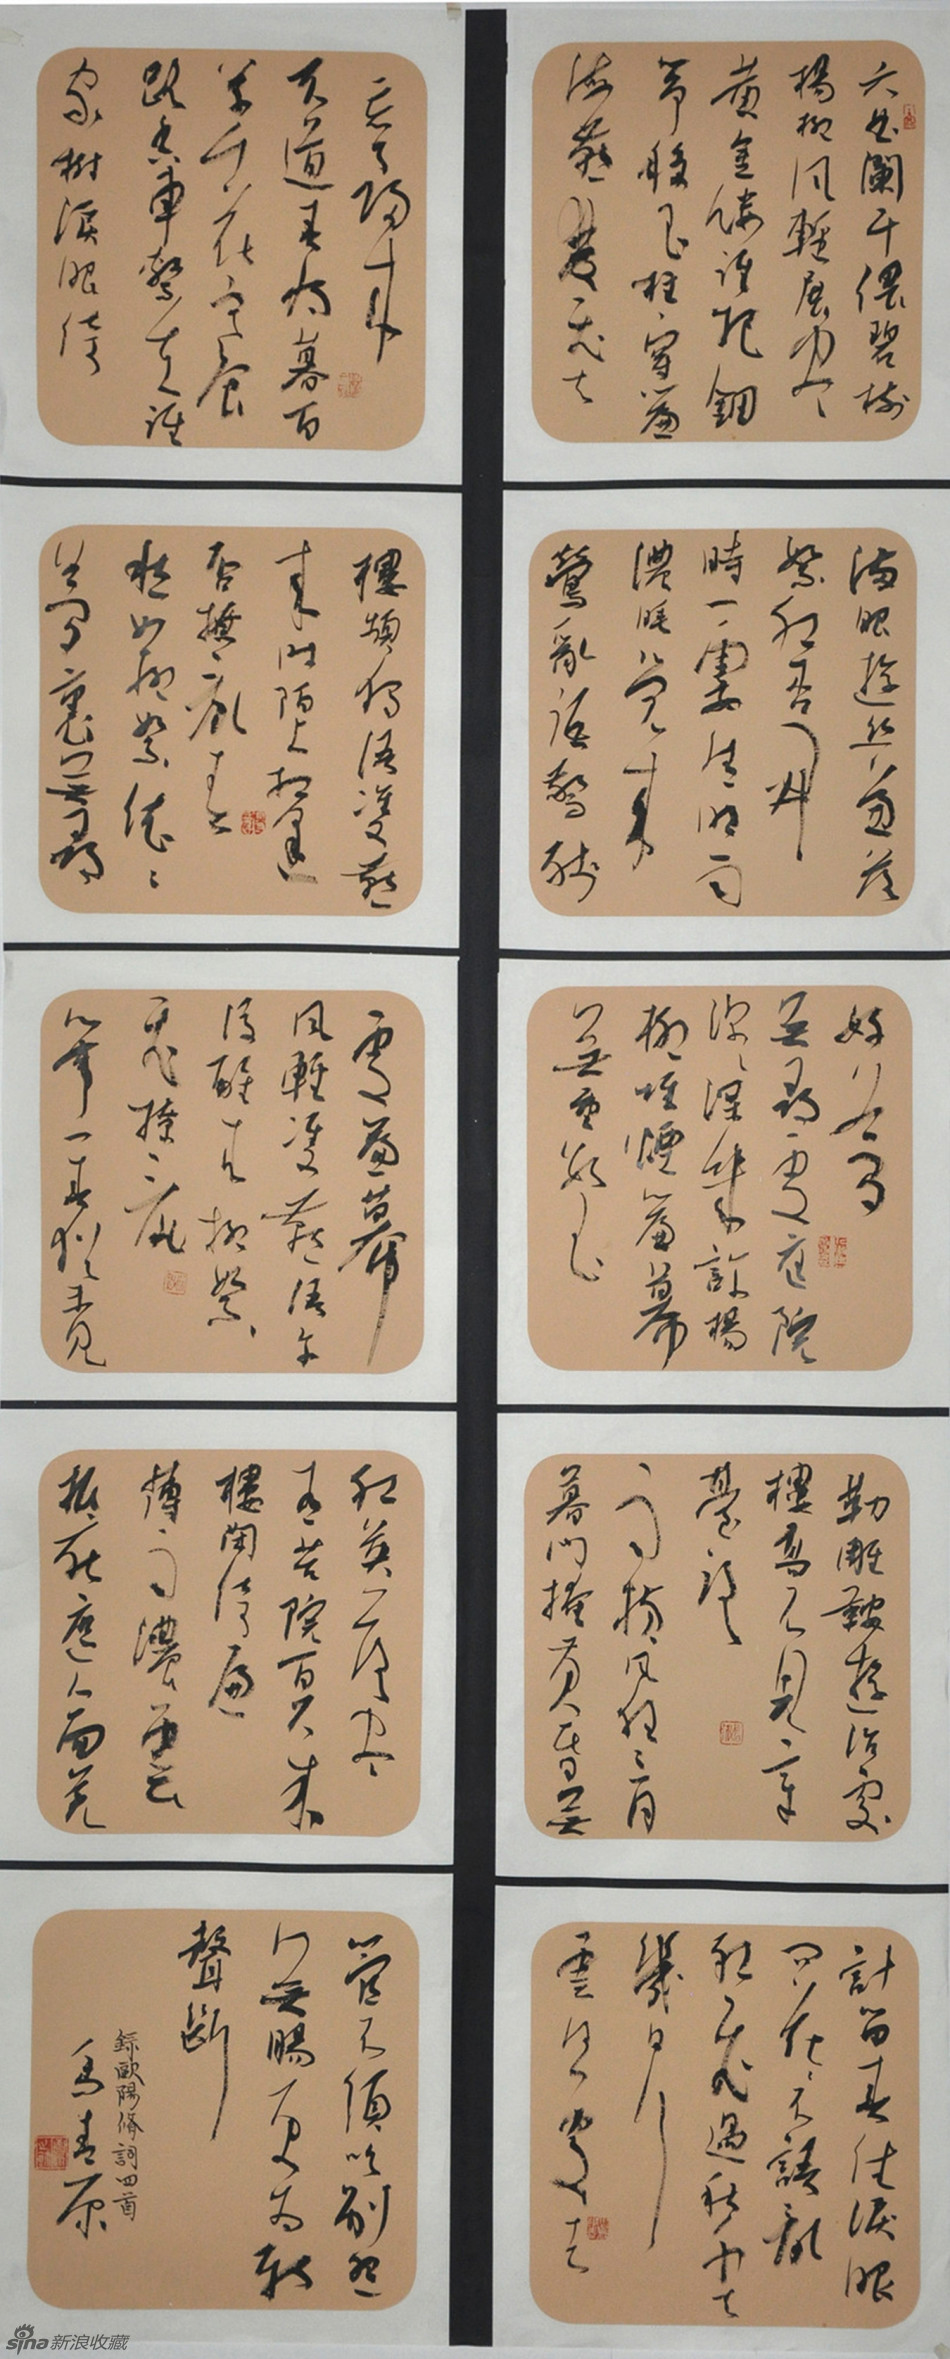 六曲闌干偎碧樹
楊柳風輕展盡
黃金縷誰把鈿
箏移玉柱穿簾
海燕雙飛去
滿眼遊絲兼落
絮紅杏開
時一霎清明雨
濃睡覺來
鶯亂語驚殘
好夢
無尋處庭院
深深深幾許楊
柳堆煙簾幕
無重數玉
勒雕鞍遊冶處
樓高不見章
臺路
雨橫風狂三月
暮門掩黃昏無
計留春住淚眼
問花花不語亂
紅飛過秋千去
幾日行
雲何處去
忘了歸來
不道春將暮百
草千花寒食
路香車繫在誰
家樹淚眼倚
樓頻獨語雙燕
來時陌上相逢
否撩亂春
愁如柳絮依依
夢裏無尋
處簾幕
風輕雙燕語午
後醒來柳絮
飛撩亂
心事一春猶未見
紅英落盡
青苔院百尺朱
樓閑倚遍
薄雨濃雲
抵死遮人面羌
管不須吹別怨
無腸更為新
聲斷
錄歐陽脩詞四首
sina新浪收藏